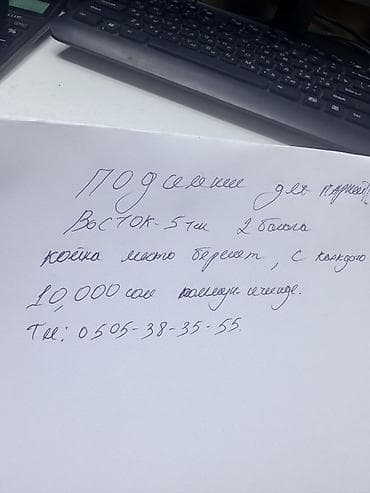 Подселение для парней
Восток-5тен 2 балага
койка место берем, с каждого
10,000 сом комму. ичинде.
Тел: 0505-38-35-55.